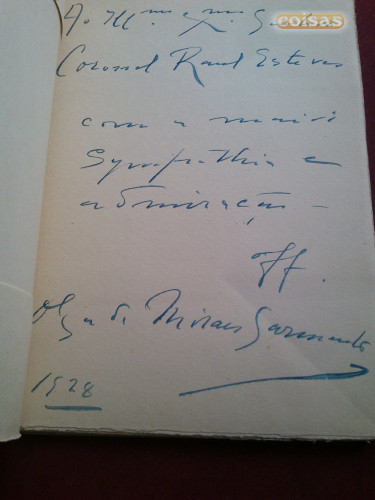 coisas
Ao Ill.mo e Ex.mo Senhor
Coronel Raul Esteves
com a maior
sympathia e
admiração —
Off.
Olga de Moraes Sarmento
1928